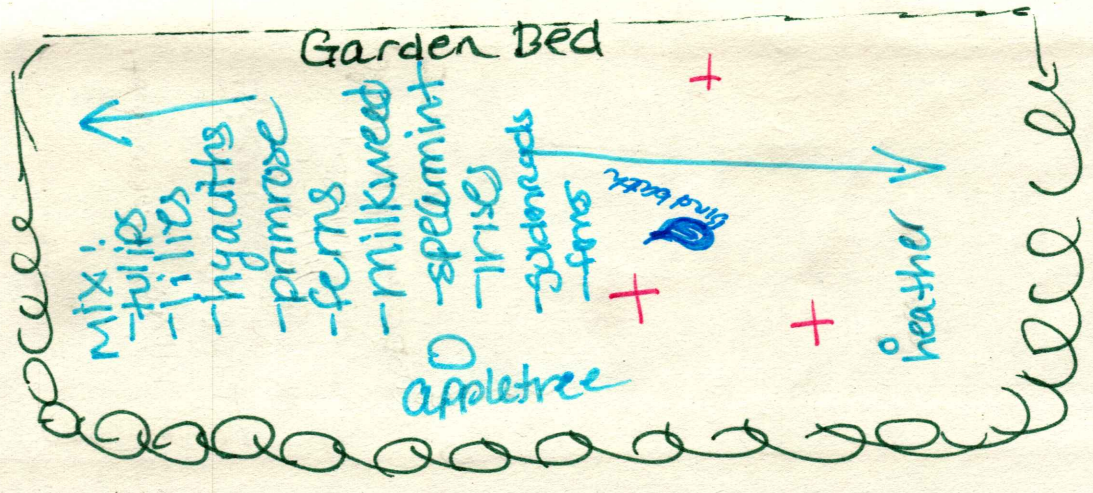 Garden Bed
Mix:
-tulips
-lilies
-hyaciths
-primrose
-ferns
-milkweed
-speamint
-irises
bird bath
heather
appletree